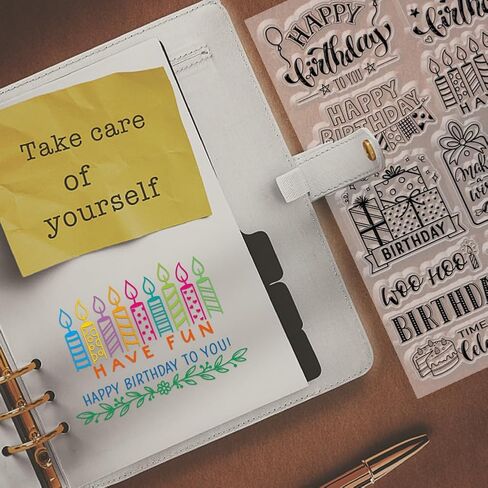 Take care
of
yourself
HAVE FUN
HAPPY BIRTHDAY TO YOU!
HAPPY
birthday
TO YOU
HAPPY
BIRTHDAY
birthday
HA
BIRTHDAY
WOO HOO!
BIRTHDAY
TIME